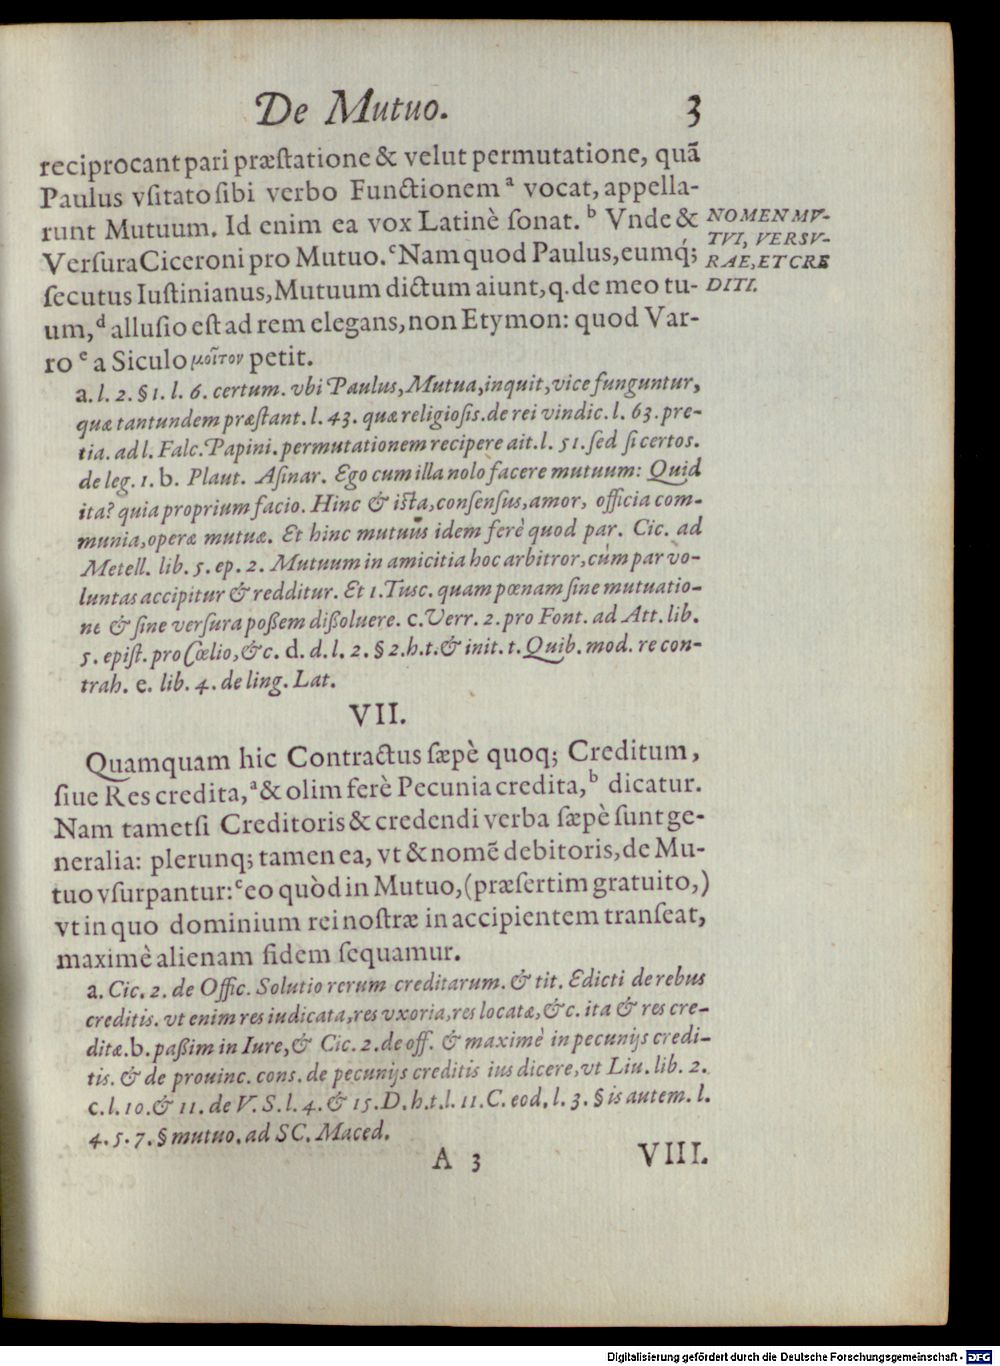 De Mutuo. 3
reciprocant pari præſtatione & velut permutatione, quā
Paulus vſitato ſibi verbo Functionem ᵃ vocat, appella-
runt Mutuum. Id enim ea vox Latinè ſonat. ᵇ Vnde &
Verſura Ciceroni pro Mutuo. ᶜ Nam quod Paulus, eumq́;
ſecutus Iuſtinianus, Mutuum dictum aiunt, q. de meo tu-
um, ᵈ alluſio eſt ad rem elegans, non Etymon: quod Var-
ro ᵉ a Siculo μοῖτον petit.
NOMEN MV-
TVI, VERSV-
RAE, ET CRE
DITI.
a. l. 2. § 1. l. 6. certum. vbi Paulus, Mutua, inquit, vice funguntur,
quæ tantundem præſtant. l. 43. quæ religioſis. de rei vindic. l. 63. pre-
tia. ad l. Falc. Papini. permutationem recipere ait. l. 51. ſed ſi certos.
de leg. 1. b. Plaut. Aſinar. Ego cum illa nolo facere mutuum: Quid
ita? quia proprium facio. Hinc & iſta, conſenſus, amor, officia com-
munia, operæ mutuæ. Et hinc mutuus idem ferè quod par. Cic. ad
Metell. lib. 5. ep. 2. Mutuum in amicitia hoc arbitror, cùm par vo-
luntas accipitur & redditur. Et 1. Tusc. quam pœnam ſine mutuatio-
ne & ſine verſura poßem dißoluere. c. Verr. 2. pro Font. ad Att. lib.
5. epiſt. pro Cœlio, &c. d. d. l. 2. § 2. h. t. & init. t. Quib. mod. re con-
trah. e. lib. 4. de ling. Lat.
VII.
Quamquam hic Contractus ſæpè quoq; Creditum,
ſiue Res credita, ᵃ & olim ferè Pecunia credita, ᵇ dicatur.
Nam tametſi Creditoris & credendi verba ſæpè ſunt ge-
neralia: plerunq; tamen ea, vt & nomē debitoris, de Mu-
tuo vſurpantur: ᶜ eo quòd in Mutuo, (præſertim gratuito,)
vt in quo dominium rei noſtræ in accipientem tranſeat,
maximè alienam fidem ſequamur.
a. Cic. 2. de Offic. Solutio rerum creditarum. & tit. Edicti de rebus
creditis. vt enim res iudicata, res vxoria, res locatæ, &c. ita & res cre-
ditæ. b. paßim in Iure, & Cic. 2. de off. & maximè in pecunijs credi-
tis. & de prouinc. cons. de pecunijs creditis ius dicere, vt Liu. lib. 2.
c. l. 10. & 11. de V. S. l. 4. & 15. D. h. t. l. 11. C. eod. l. 3. § is autem. l.
4. 5. 7. § mutuo. ad SC. Maced.
A 3 VIII.
Digitalisierung gefördert durch die Deutsche Forschungsgemeinschaft - DFG